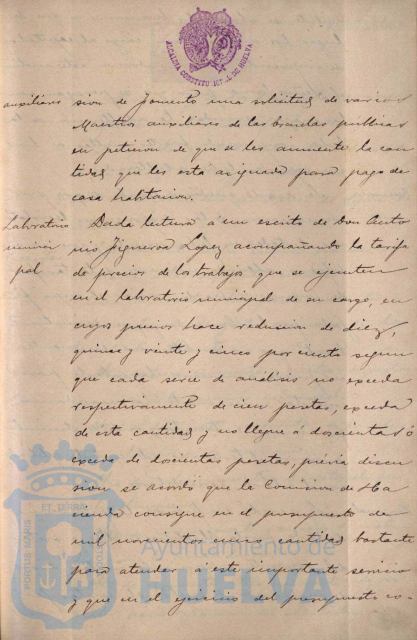 ALCALDIA CONSTITUCIONAL DE HUELVA
auxiliares sion de Fomento una solicitud de varios
Maestros auxiliares de las Escuelas publicas
en peticion de que se les aumente la can
tidad que les está asignada para pago de
casa habitacion.
Laboratorio Dada lectura á un escrito de Don Anto
munici nio Figueroa Lopez acompañando la tarifa
pal de precios de los trabajos que se ejecuten
en el laboratorio municipal de su cargo, en
cuyos precios hace reduccion de diez,
quince y veinte y cinco por ciento segun
que cada serie de análisis no exceda
respectivamente de cien pesetas, exceda
de esta cantidad y no llegue á doscientas ó
exceda de doscientas pesetas, prévia discu
sion se acordó que la Comision de Ha
cienda consigne en el presupuesto de
mil novecientos cinco cantidad bastante
para atender á este importante servicio
y que en el ejercicio del presupuesto co-
PORTUS MARIS
ET TERRÆ
CUSTODIA
Ayuntamiento de
HUELVA